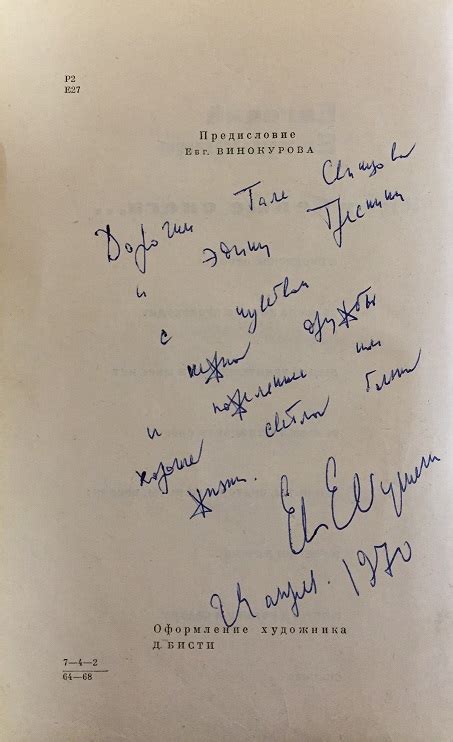 Р2
Е27
Предисловие
Евг. ВИНОКУРОВА
Дорогим Гале
и Эдику
с чувством
нежной дружбы
и пожеланием им
хорошей светлой
жизни.
апрел. 1970
Оформление художника
Д. БИСТИ
7—4—2
64—68